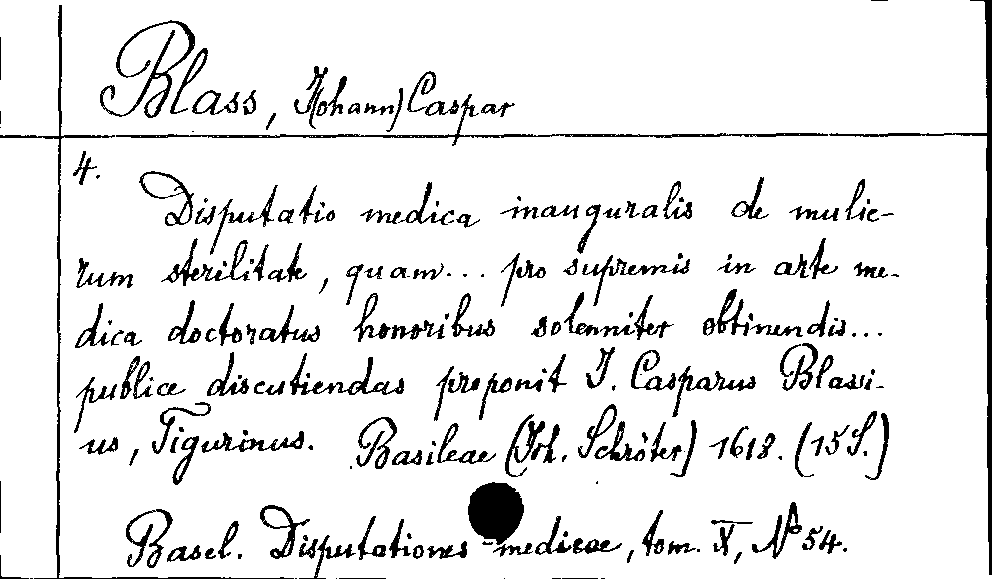 Blass, J(ohann) Caspar
4.
Disputatio medica inauguralis de mulie-
rum sterilitate, quam... pro supremis in arte me-
dica doctoratus honoribus solenniter obtinendis...
publice discutiendas proponit J. Casparus Blassi-
us, Tigurinus. Basileae (Joh. Schröter) 1618. (15 S.)
Basel. Disputationes medicae, tom. X, No 54.